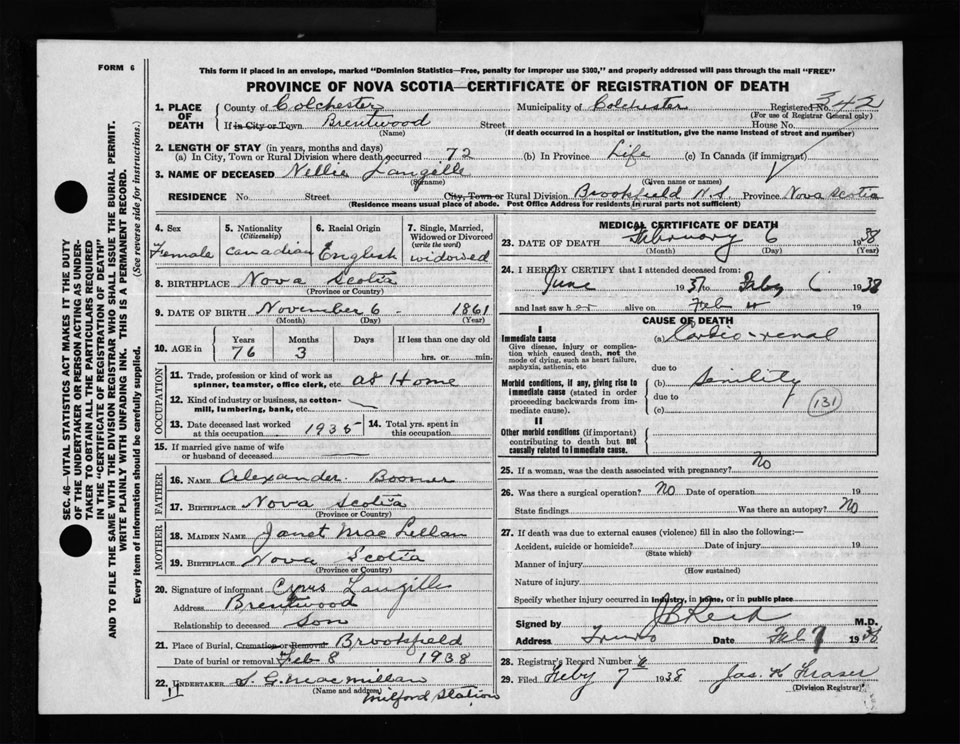 FORM 6
This form if placed in an envelope, marked "Dominion Statistics—Free, penalty for improper use $300," and properly addressed will pass through the mail "FREE"
PROVINCE OF NOVA SCOTIA—CERTIFICATE OF REGISTRATION OF DEATH
1. PLACE OF DEATH County of Colchester Municipality of Colchester Registered No. 342
(For use of Registrar General only)
If in City or Town Brentwood Street House No.
(Name) (If death occurred in a hospital or institution, give the name instead of street and number)
2. LENGTH OF STAY (in years, months and days)
(a) In City, Town or Rural Division where death occurred 72 (b) In Province Life (c) In Canada (if immigrant)
3. NAME OF DECEASED Nellie Langille
(Surname) (Given name or names)
RESIDENCE No Street City, Town or Rural Division Brookfield N.S Province Nova Scotia
(Residence means usual place of abode. Post Office Address for residents in rural parts not sufficient)
4. Sex
Female
5. Nationality
(Citizenship)
Canadian
6. Racial Origin
English
7. Single, Married, Widowed or Divorced
(write the word)
widowed
8. BIRTHPLACE Nova Scotia
(Province or Country)
9. DATE OF BIRTH November 6 1861
(Month) (Day) (Year)
10. AGE in Years Months Days If less than one day old
76 3 hrs. or min.
OCCUPATION
11. Trade, profession or kind of work as spinner, teamster, office clerk, etc. at Home
12. Kind of industry or business, as cotton-mill, lumbering, bank, etc.
13. Date deceased last worked at this occupation 1935 14. Total yrs. spent in this occupation
15. If married give name of wife or husband of deceased
FATHER
16. NAME Alexander Boomer
17. BIRTHPLACE Nova Scotia
(Province or Country)
MOTHER
18. MAIDEN NAME Janet Mac Lellan
19. BIRTHPLACE Nova Scotia
(Province or Country)
20. Signature of informant Cyrus Langille
Address Brentwood
Relationship to deceased son
21. Place of Burial, Cremation or Removal Brookfield
Date of burial or removal Feb 8 1938
22. UNDERTAKER S. G. MacMillan
(Name and address) Milford Station
11
MEDICAL CERTIFICATE OF DEATH
23. DATE OF DEATH February 6 1938
(Month) (Day) (Year)
24. I HEREBY CERTIFY that I attended deceased from:
June 1937 to Feby 6 1938
and last saw her alive on Feb 4 19
CAUSE OF DEATH
I
Immediate cause
Give disease, injury or complication which caused death, not the mode of dying, such as heart failure, asphyxia, asthenia, etc
(a) Cardio-renal
due to
Morbid conditions, if any, giving rise to immediate cause (stated in order proceeding backwards from immediate cause).
(b) Senility
due to
(c) 131
II
Other morbid conditions (if important) contributing to death but not causally related to immediate cause.
25. If a woman, was the death associated with pregnancy? No
26. Was there a surgical operation? No Date of operation 19
State findings Was there an autopsy? No
27. If death was due to external causes (violence) fill in also the following:—
Accident, suicide or homicide? Date of injury 19
(State which)
Manner of injury
(How sustained)
Nature of injury
Specify whether injury occurred in industry, in home, or in public place
Signed by J B Reid M.D.
Address Truro Date Feb 7 1938
28. Registrar's Record Number 6
29. Filed Feby 7 1938 Jas. K Fraser
(Division Registrar)
SEC. 46—VITAL STATISTICS ACT MAKES IT THE DUTY
OF THE UNDERTAKER OR PERSON ACTING AS UNDER-
TAKER TO OBTAIN ALL THE PARTICULARS REQUIRED
IN THE "CERTIFICATE OF REGISTRATION OF DEATH"
AND TO FILE THE SAME WITH THE DIVISION REGISTRAR WHO SHALL ISSUE THE BURIAL PERMIT.
WRITE PLAINLY WITH UNFADING INK. THIS IS A PERMANENT RECORD.
Every item of information should be carefully supplied. (See reverse side for instructions.)